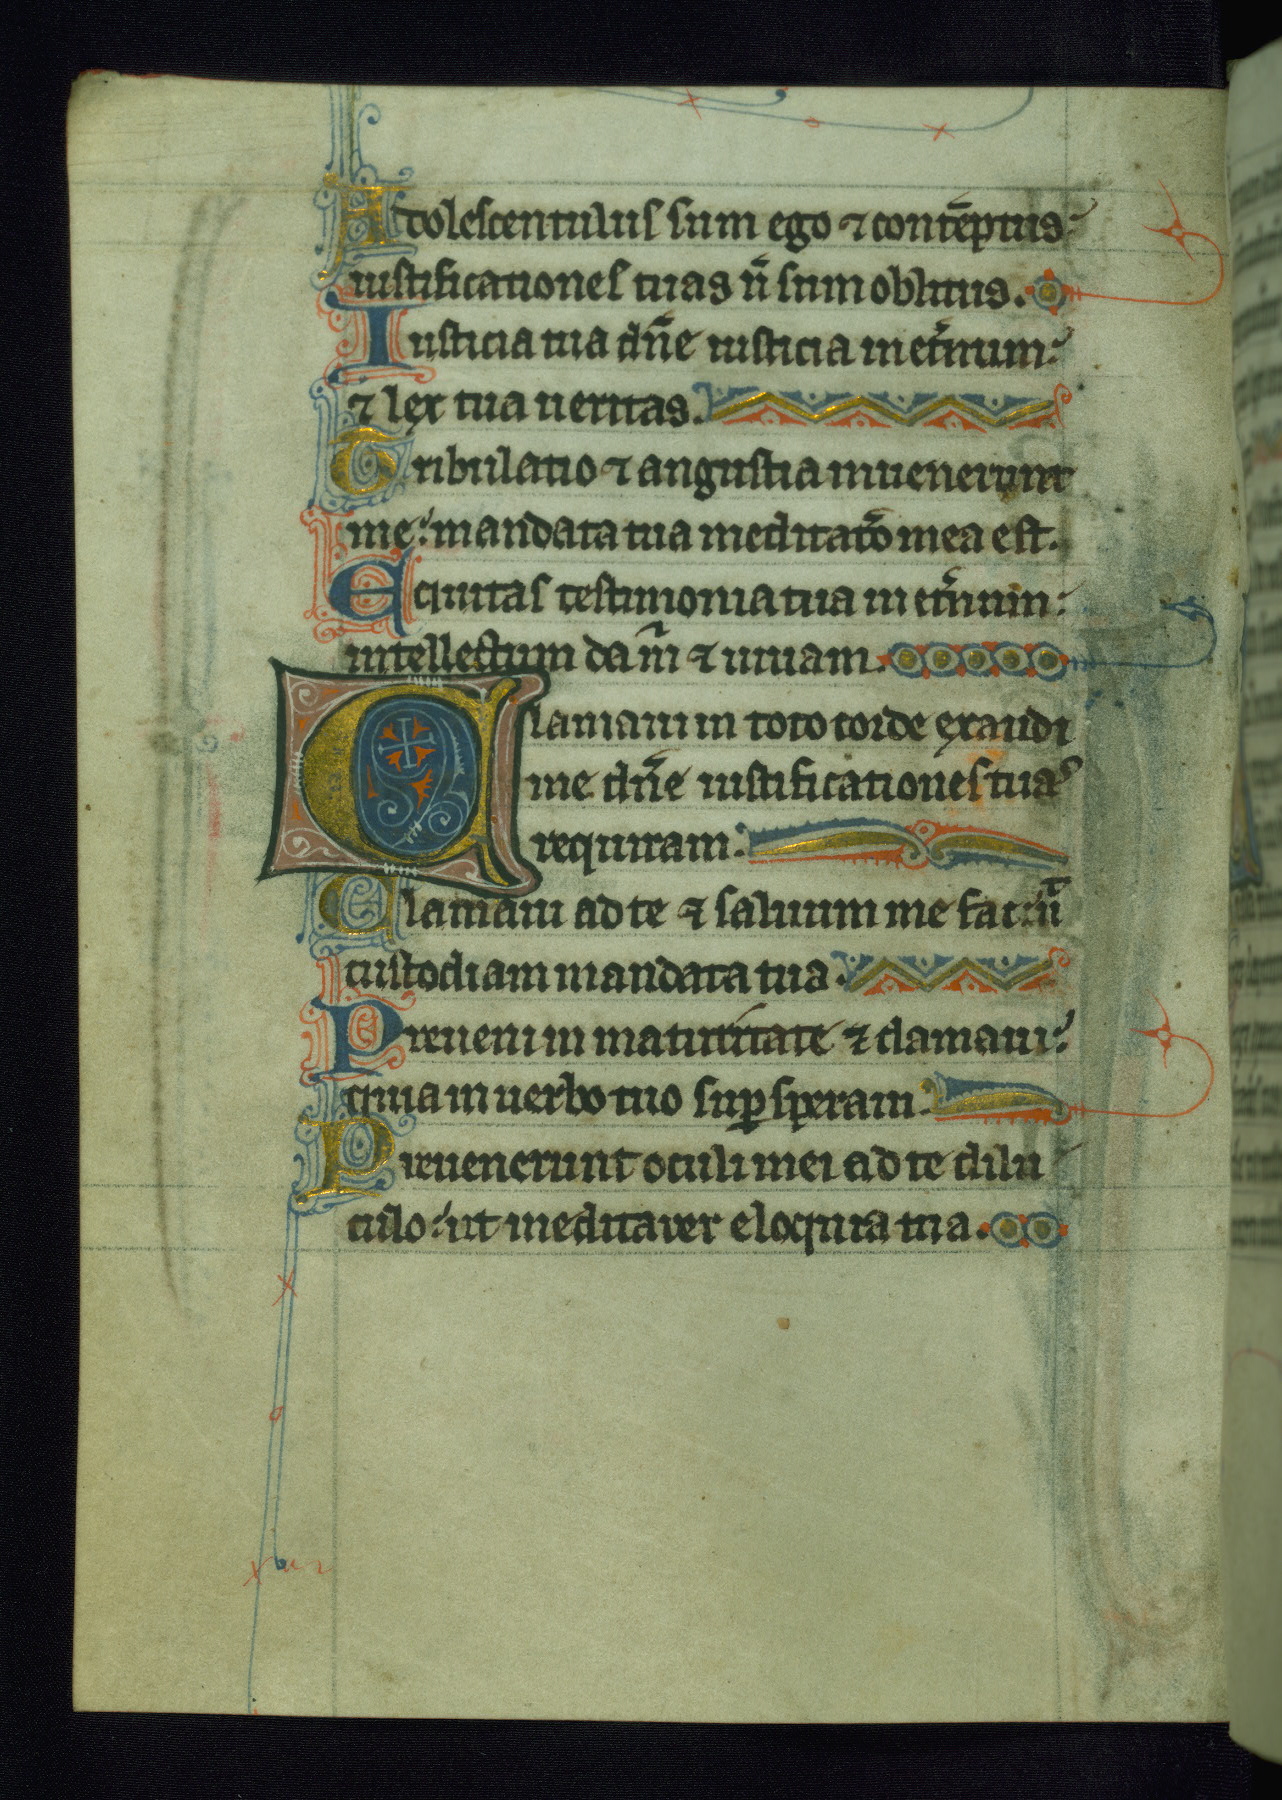 Adolescentulus sum ego ⁊ contēptus
iustificationes tuas n̄ sum oblitus.
Iusticia tua dn̄e iusticia in et̄num:
⁊ lex tua ueritas.
Tribulatio ⁊ angustia inuenerunt
me: mandata tua meditatō mea est.
Equitas testimonia tua in et̄num:
intellectum da m̄ ⁊ uiuam.
Clamaui in toto corde exaudi
me dn̄e iustificationes tuas
requiram:
Clamaui ad te ⁊ saluum me fac: ut̄
custodiam mandata tua.
Preueni in maturitate ⁊ clamaui:
quia in uerbo tuo suꝑ speraui.
Preuenerunt oculi mei ad te dilu
culo: ut meditarer eloquia tua.